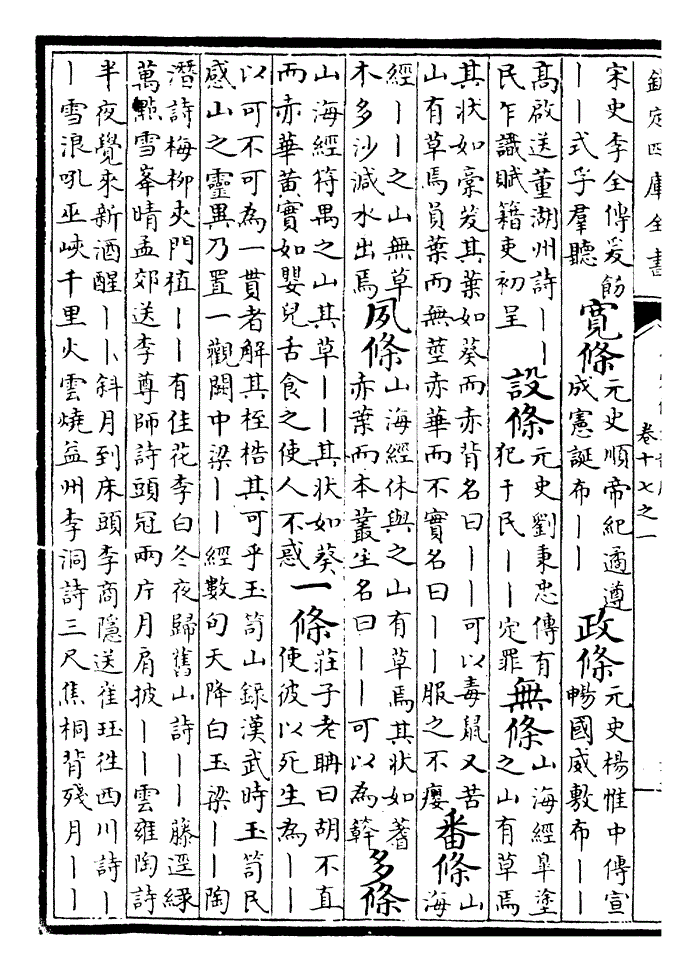 欽定四庫全書
卷十七之一
宋史李全傳爰飭
丨丨式孚羣聽
寛條
元史順帝紀遹遵
成憲誕布丨丨
政條
元史楊惟中傳宣
暢國威敷布丨丨
髙啟送董湖州詩丨丨
民乍識賦籍吏初呈
設條
元史劉秉忠傳有
犯于民丨丨定罪
無條
山海經臯塗
之山有草焉
其状如藁茇其葉如葵而赤背名曰丨丨可以毒鼠又苦
山有草焉員葉而無莖赤華而不實名曰丨丨服之不癭
番條
山
海
經丨丨之山無草
木多沙減水出焉
夙條
山海經休與之山有草焉其状如蓍
赤葉而本叢生名曰丨丨可以為簳
多條
山海經符禺之山其草丨丨其状如葵
而赤華黄實如嬰兒舌食之使人不惑
一條
莊子老聃曰胡不直
使彼以死生為丨丨
以可不可為一貫者解其桎梏其可乎玉笥山錄漢武時玉笥民
感山之靈異乃置一觀闕中梁丨丨經數旬天降白玉梁丨丨陶
潛詩梅柳夾門植丨丨有佳花李白冬夜歸舊山詩丨丨藤逕緑
萬㸃雪峯晴孟郊送李尊師詩頭冠兩片月肩披丨丨雲雍陶詩
半夜覺來新酒醒丨丨斜月到床頭李商隱送崔珏往西川詩丨
丨雪浪吼巫峽千里火雲燒益州李洞詩三尺焦桐背殘月丨丨